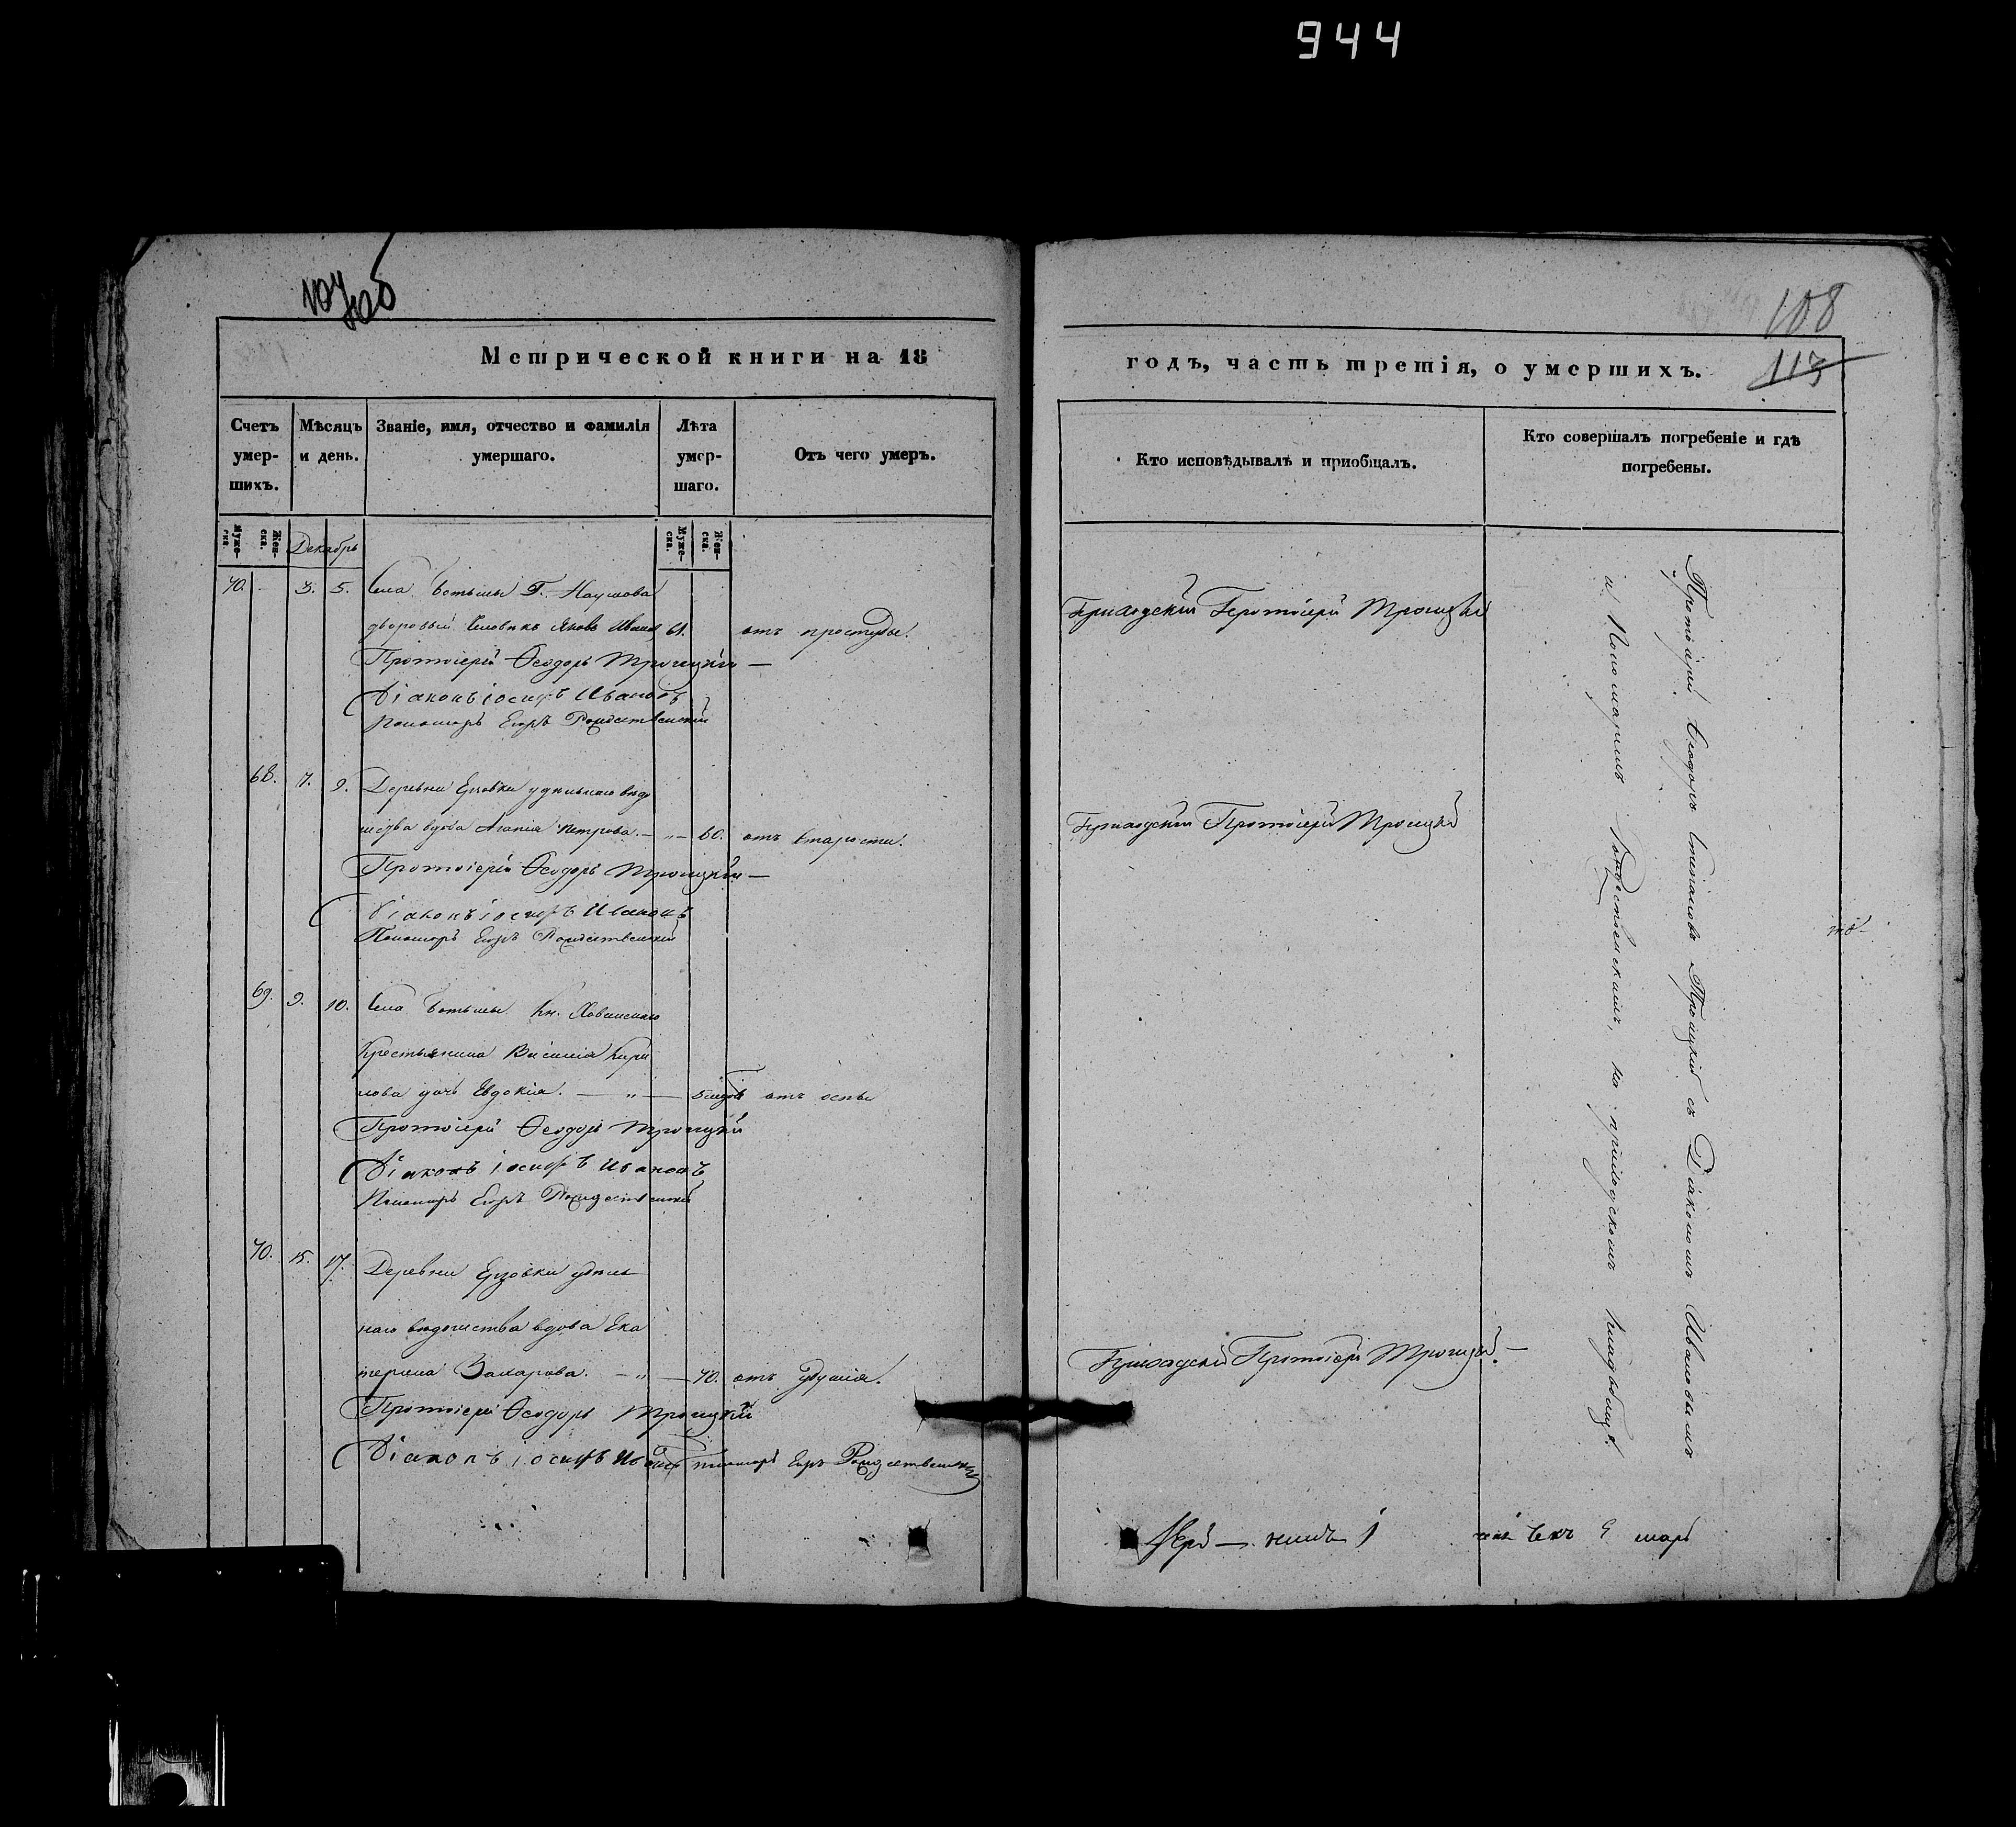 944
108
113
Метрической книги на 18
годъ, часть третія, о умершихъ.
Счетъ умер-шихъ.
Мѣсяцъ и день.
Званіе, имя, отчество и фамилія умершаго.
Лѣта умер-шаго.
Отъ чего умеръ.
Кто исповѣдывалъ и пріобщалъ.
Кто совершалъ погребеніе и гдѣ погребены.
Муже-ска.
Жен-ска.
Декабрь
Муже-ска.
Жен-ска.
70. - 3. 5. Села Ботьмы Г. Наумова
дворовый человѣкъ Яковъ Ивановъ 61. отъ простуды.
Приходскій Протоіерей Троицкій
Протоіерей Ѳеодоръ Троицкій —
Діаконъ іосифъ Ивановъ
Пономарь Егоръ Рождественскій
68. 7. 9. Деревни Ерзовки удѣльнаго вѣдо
мства вдова Агапія Петрова. — „ — 60. отъ старости.
Приходскій Протоіерей Троицкій
Протоіерей Ѳеодоръ Троицкій —
Діаконъ іосифъ Ивановъ
Пономарь Егоръ Рождественскій
69. 9. 10. Села Ботьмы Кн. Хованскаго
крестьянина Василія Кири
лова дочь Евдокія. — „ — отъ оспы
Протоіерей Ѳеодоръ Троицкій
Діаконъ іосифъ Ивановъ
Пономарь Егоръ Рождественскій
70. 15. 17. Деревни Ерзовки удѣль
наго вѣдомства вдова Ека
терина Захарова. — „ — 70. отъ удушія.
Приходскій Протоіерей Троицкій. —
Протоіерей Ѳеодоръ Троицкій
Діаконъ іосифъ Ивановъ Пономарь Егоръ Рождественскій
Протоіерей Ѳеодоръ Троицкій съ Діакономъ Ивановымъ
и Пономаремъ Рождественскимъ, на приходскомъ кладбищѣ.